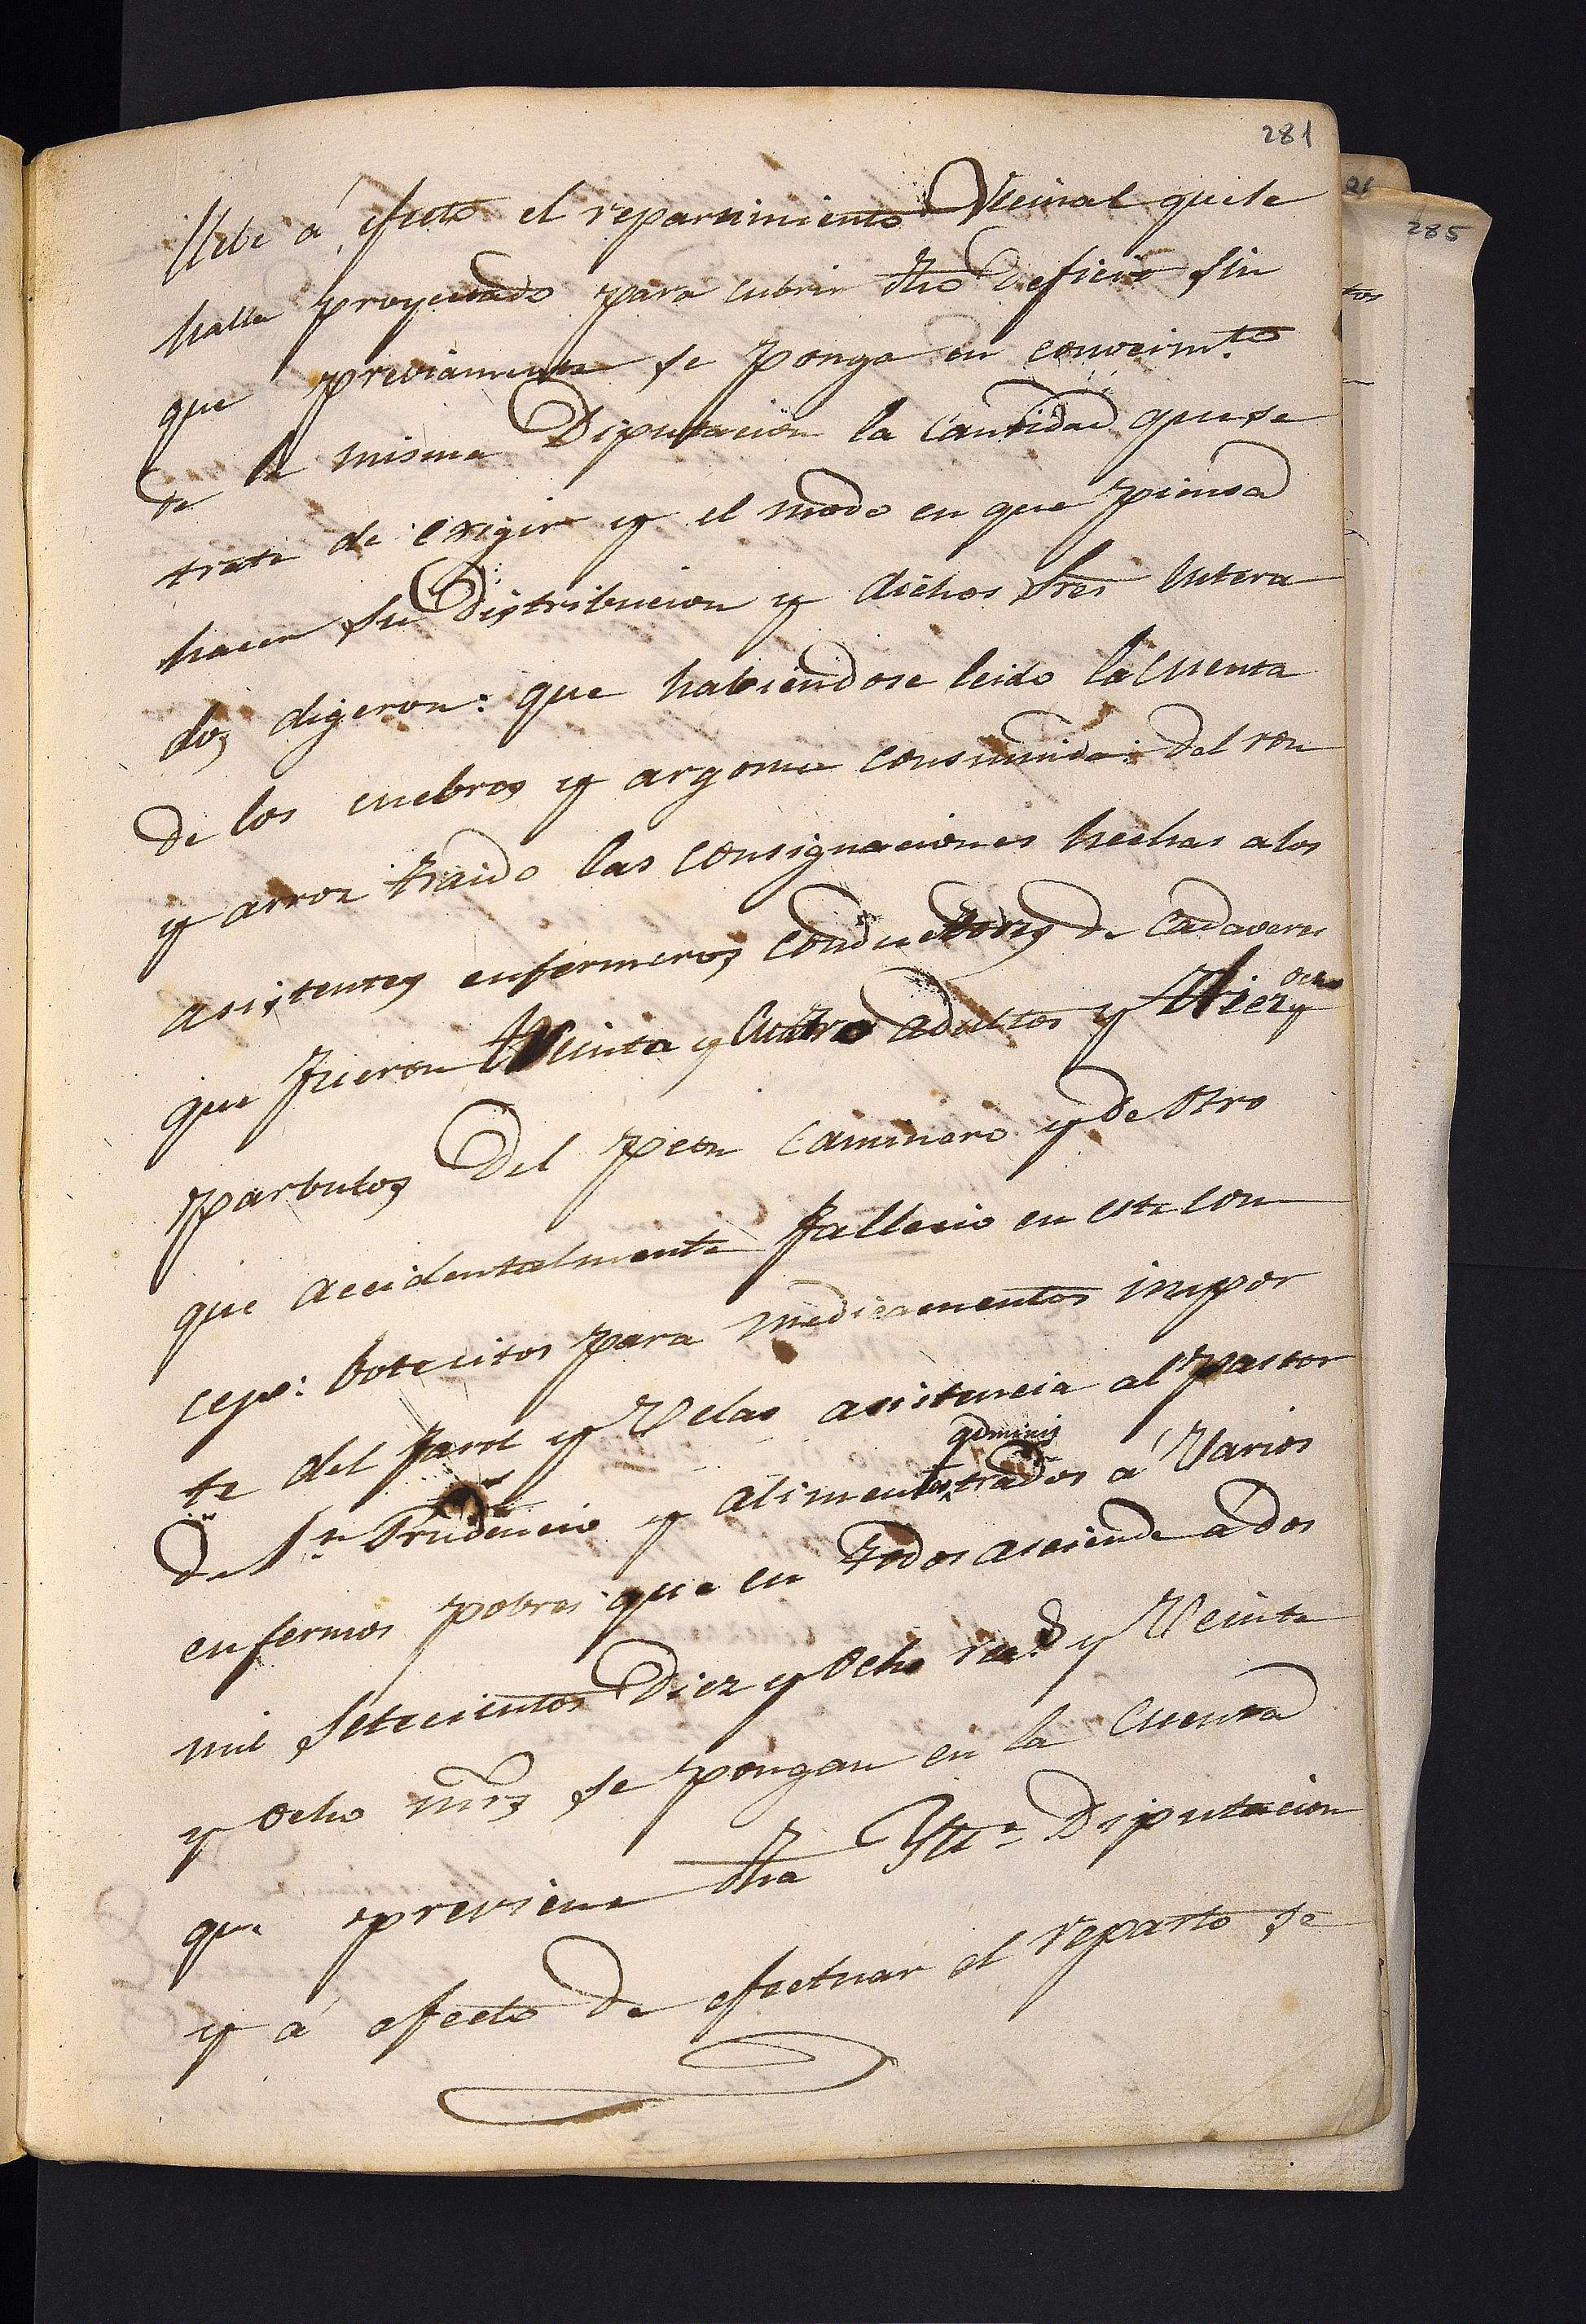 281
llebe á efecto el repartimiento Vecinal que se
halla proyectado para cubrir dho deficit sin
que previamente se ponga en conocim.to
de la misma Diputacion la Cantidad que se
trata de exigir y el modo en que piensa
hacer su Distribucion y dichos Sres Entera
dos digeron: que habiendose leido la Cuenta
de los enebros y argoma consumida: del ron
y arroz traido las consignaciones hechas a los
asistentes enfermeros conductores de Cadaveres
que fueron Treinta y Cuatro adultos y Diez y ocho
parbulos Del peon Caminero y de Otro
que accidentalmente fallecio en este Con
cejo: botecitos para medicamentos impor
te del farol y Velas asistencia al Pastor
De S.n Prudencio y alimentos adminis
trados á Varios
enfermos pobres que en todos asciende á dos
mil Setecientos Diez y Ocho rea.s y Veinte
y Ocho mrs se pongan en la Cuenta
que previene dha Ylt.a Diputacion
y á efecto De efectuar el reparto se
285
tos